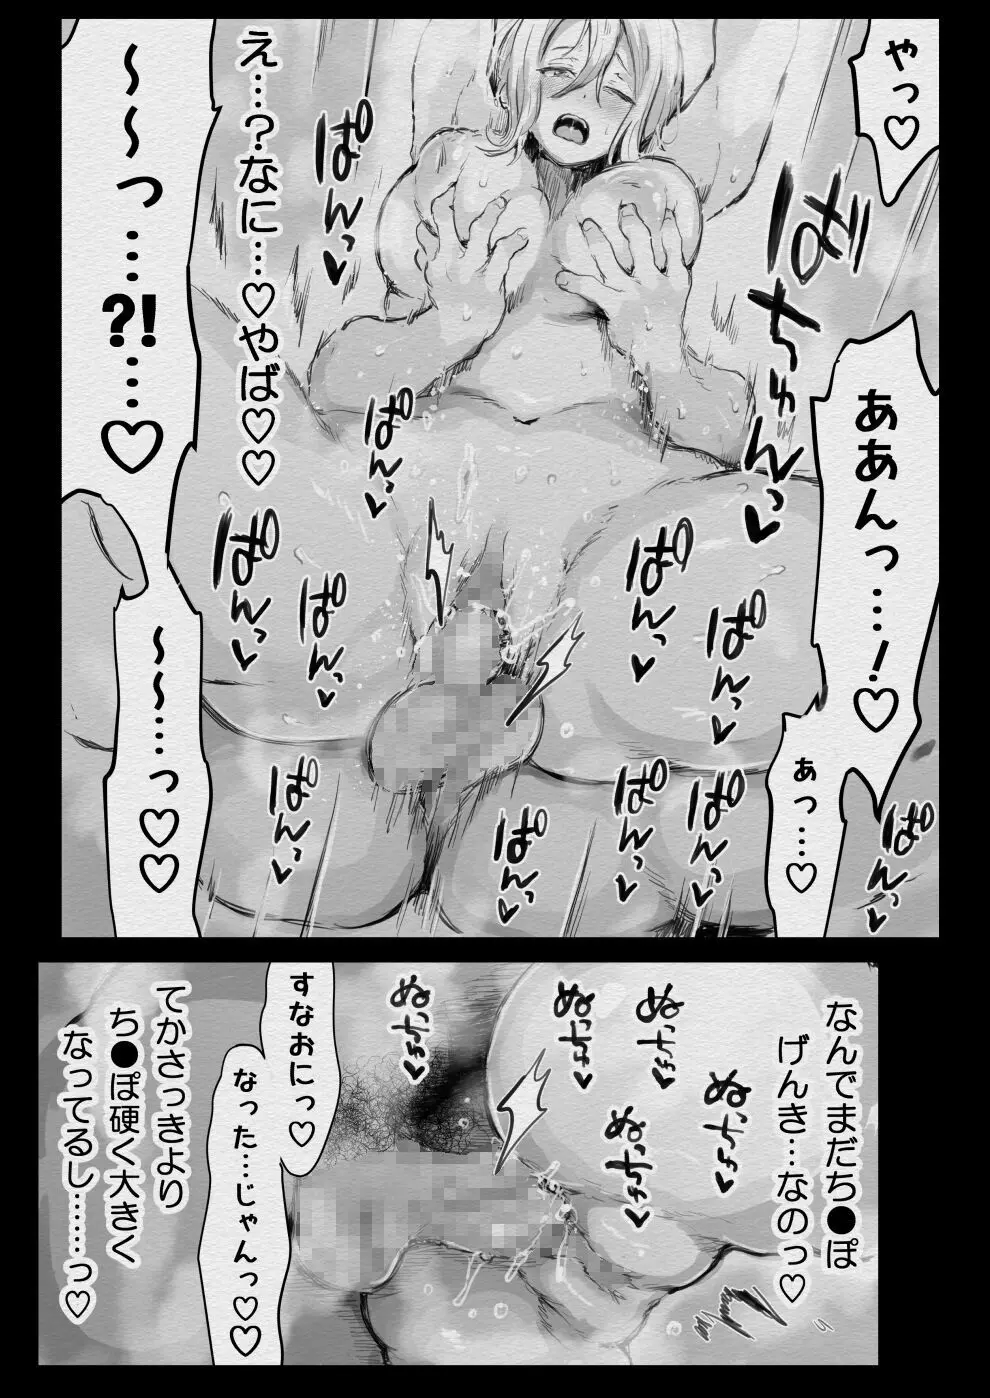 やっ♡
ばちゅんっ♥
ああんっ…！♡
あっ…♡
え…？なに…♡やば♡♡
～～っ…⁈…♡
～～……っ♡♡
ぱんっ♥
ぱんっ♥
ぱんっ♥
ぱんっ♥
ぱんっ♥
ぱんっ♥
ぱんっ♥
ぱんっ♥
ぱんっ♥
ぱんっ♥
ぱんっ♥
なんでまだち●ぽ
げんき…なのっ♡
ぬちっ♥
ぬちっ♥
ぬちっ♥
ぬちっ♥
ぬちっ♥
すなおにっ♡
なった…じゃんっ♡♡
てかさっきより
ち●ぽ硬く大きく
なってるし……っ♡